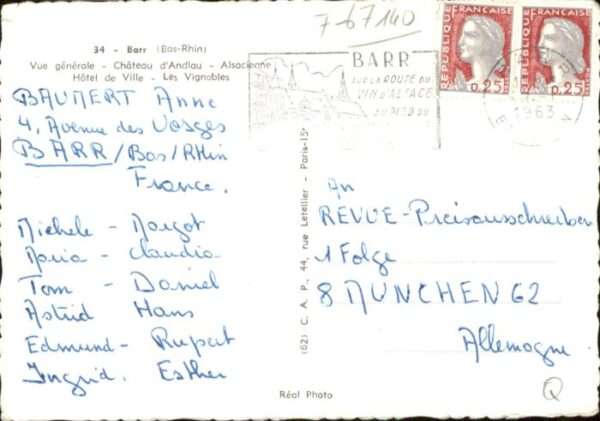 7-67140
34 - Barr (Bas-Rhin)
Vue générale - Château d'Andlau - Alsacienne
Hôtel de Ville - Les Vignobles
BAUMERT Anne
4, Avenue des Vosges
BARR/Bas/Rhin
France.
Michele - Margot
Maria - Claudia
Tom - Daniel
Astrid Hans
Edmund - Rupert
Ingrid. Esther
(62) C. A. P., 44, rue Letellier - Paris-15e
Réal Photo
BARR
SUR LA ROUTE DU
VIN D'ALSACE
REPUBLIQUE FRANÇAISE
0,25
REPUBLIQUE FRANÇAISE
0,25
1963
An
REVUE-Preisausschreiben
1 Folge
8 MUNCHEN 62
Allemagne
Q